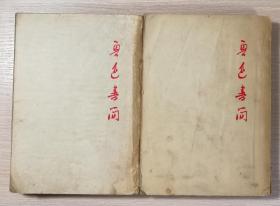 鲁迅书简
鲁迅书简